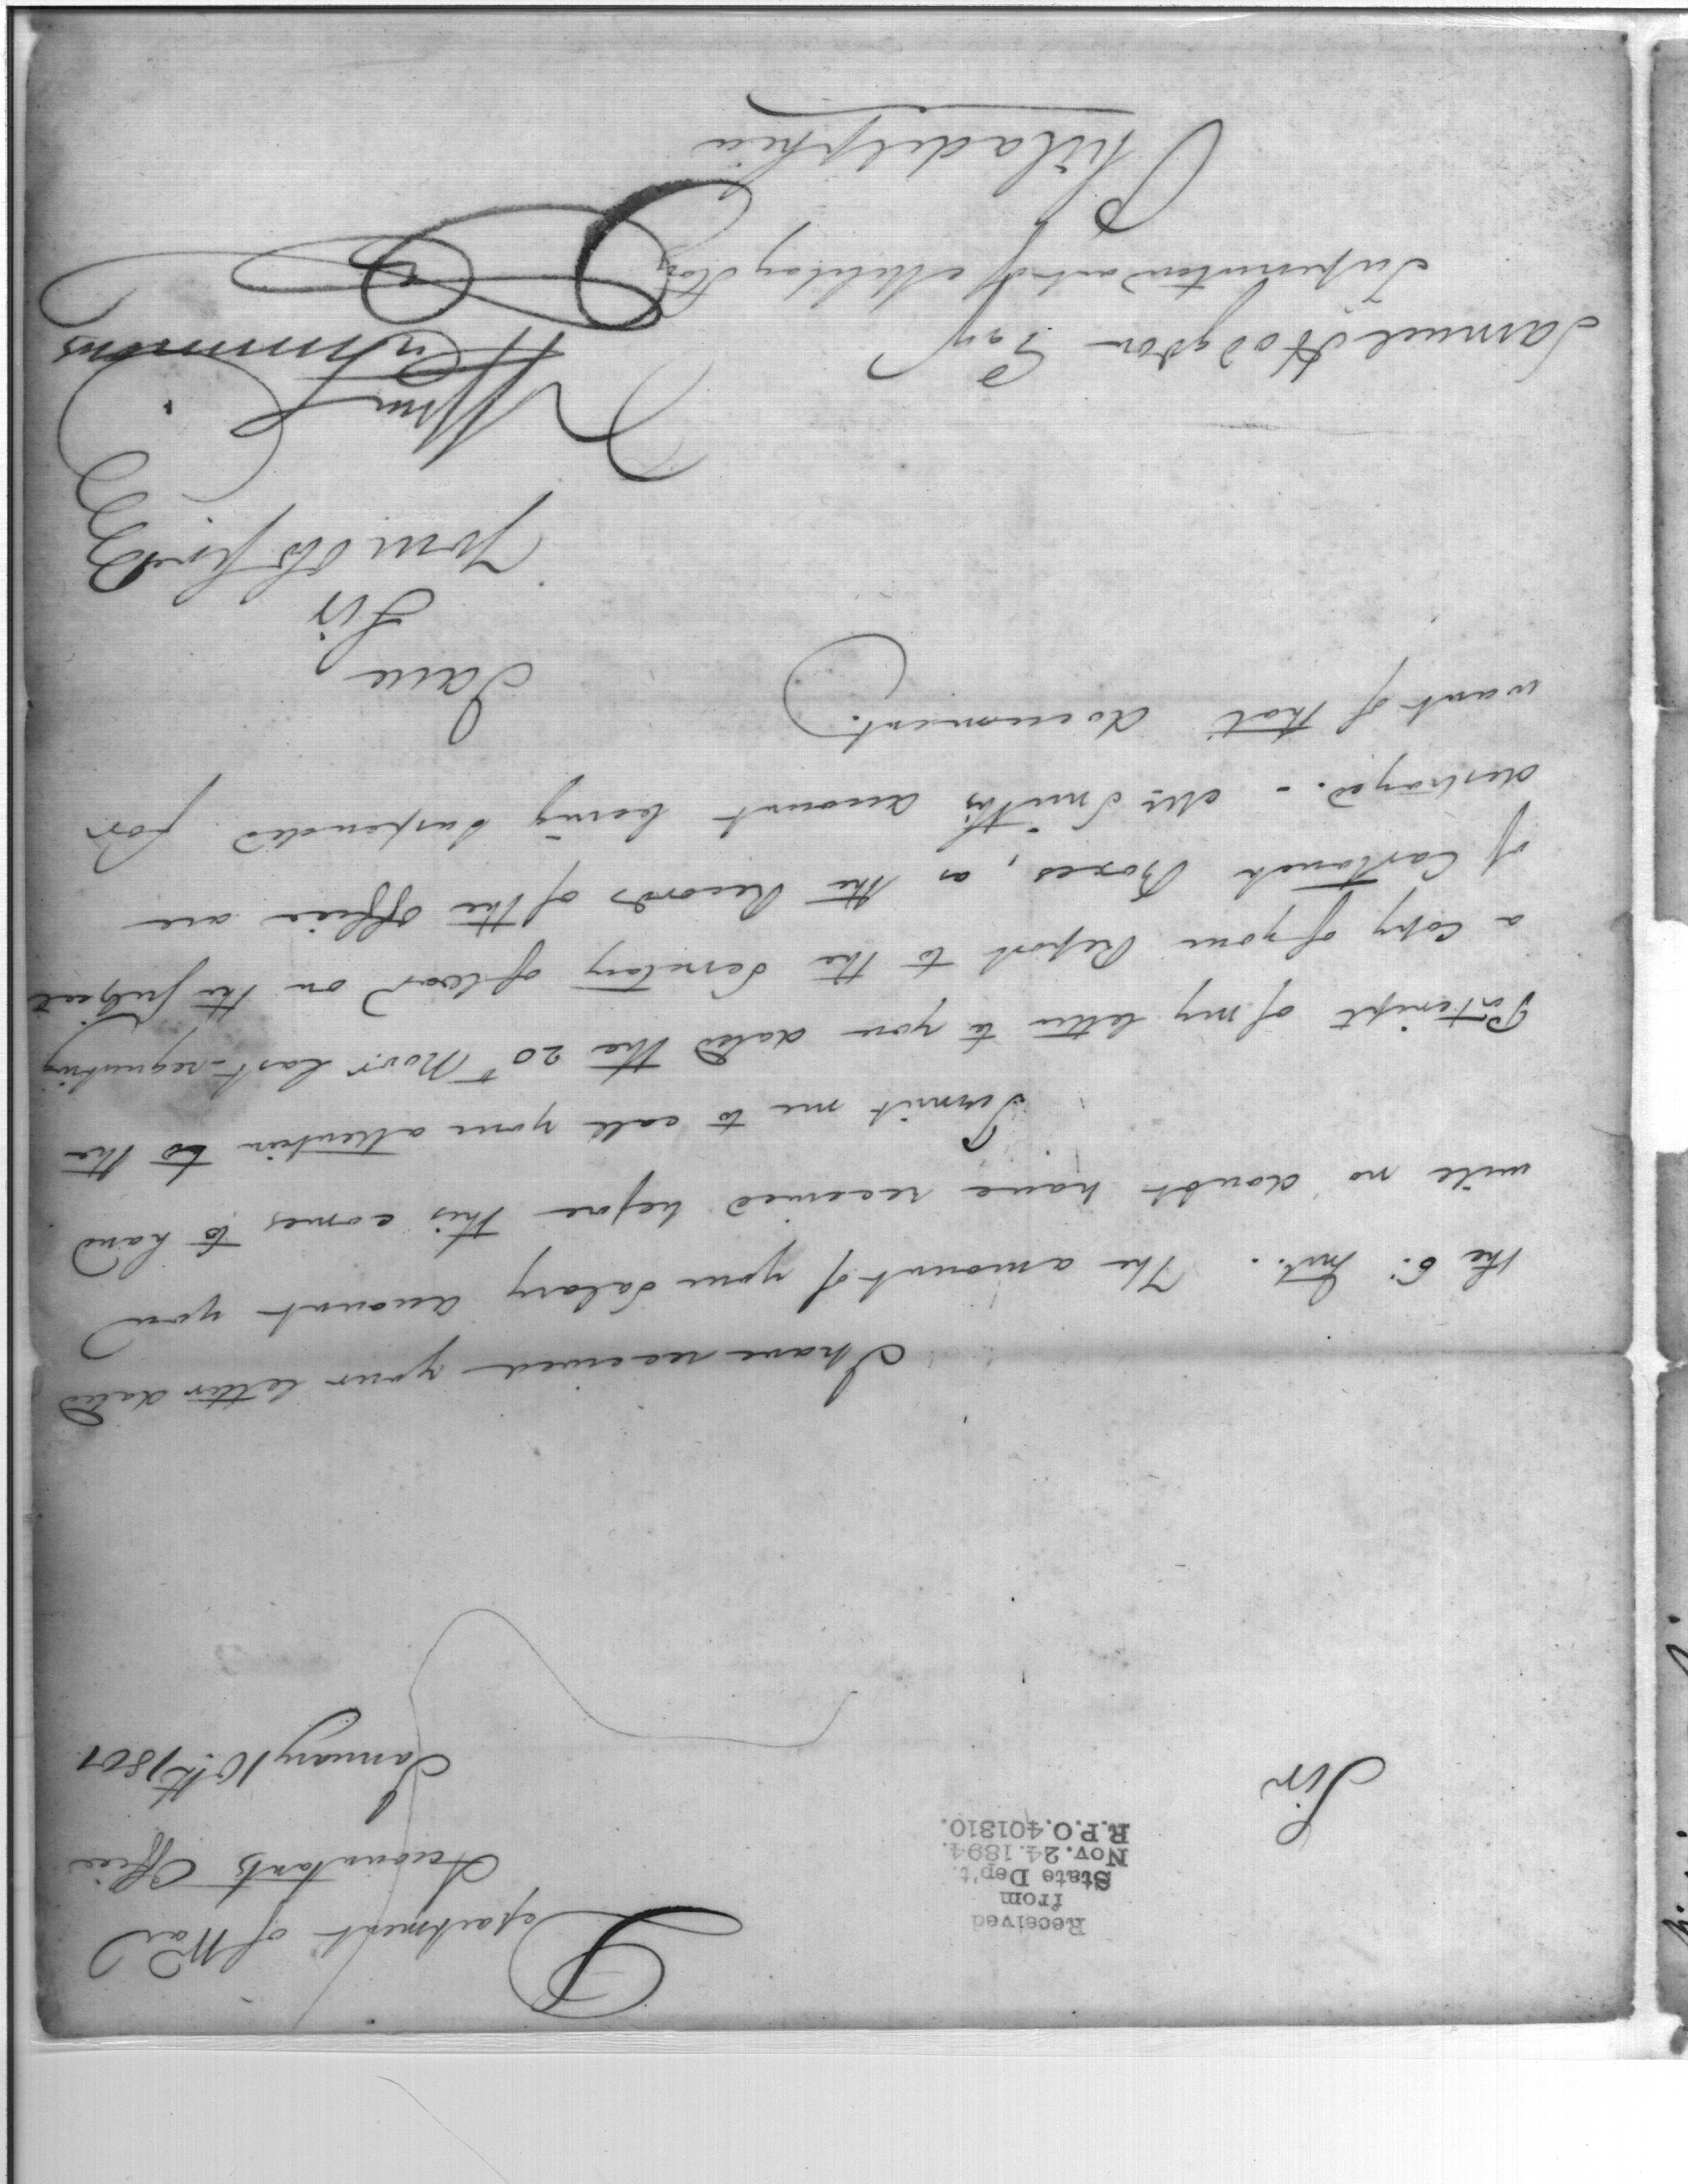 Department of War
Accountants Office
January 10th 1801
Received
from
State Dep't.
Nov. 24. 1894.
R.P.O. 401310.
Sir
I have received your letter dated
the 6: Inst. The amount of your Salary account you
will no doubt have received before this comes to hand
Permit me to call your attention to the
Postcript of my letter to you dated the 20th Novr. last requesting
a Copy of your Report to the Secretary of War on the subject
of Cartouch Boxes, as the Records of the office are
destroyed. - Mr. Smiths account being suspended for
want of that document.
I am
Sir
your Ob Servt
Wm Simmons
Samuel Hodgdon Esqr
Superintendant of Military Stors
Philadelphia